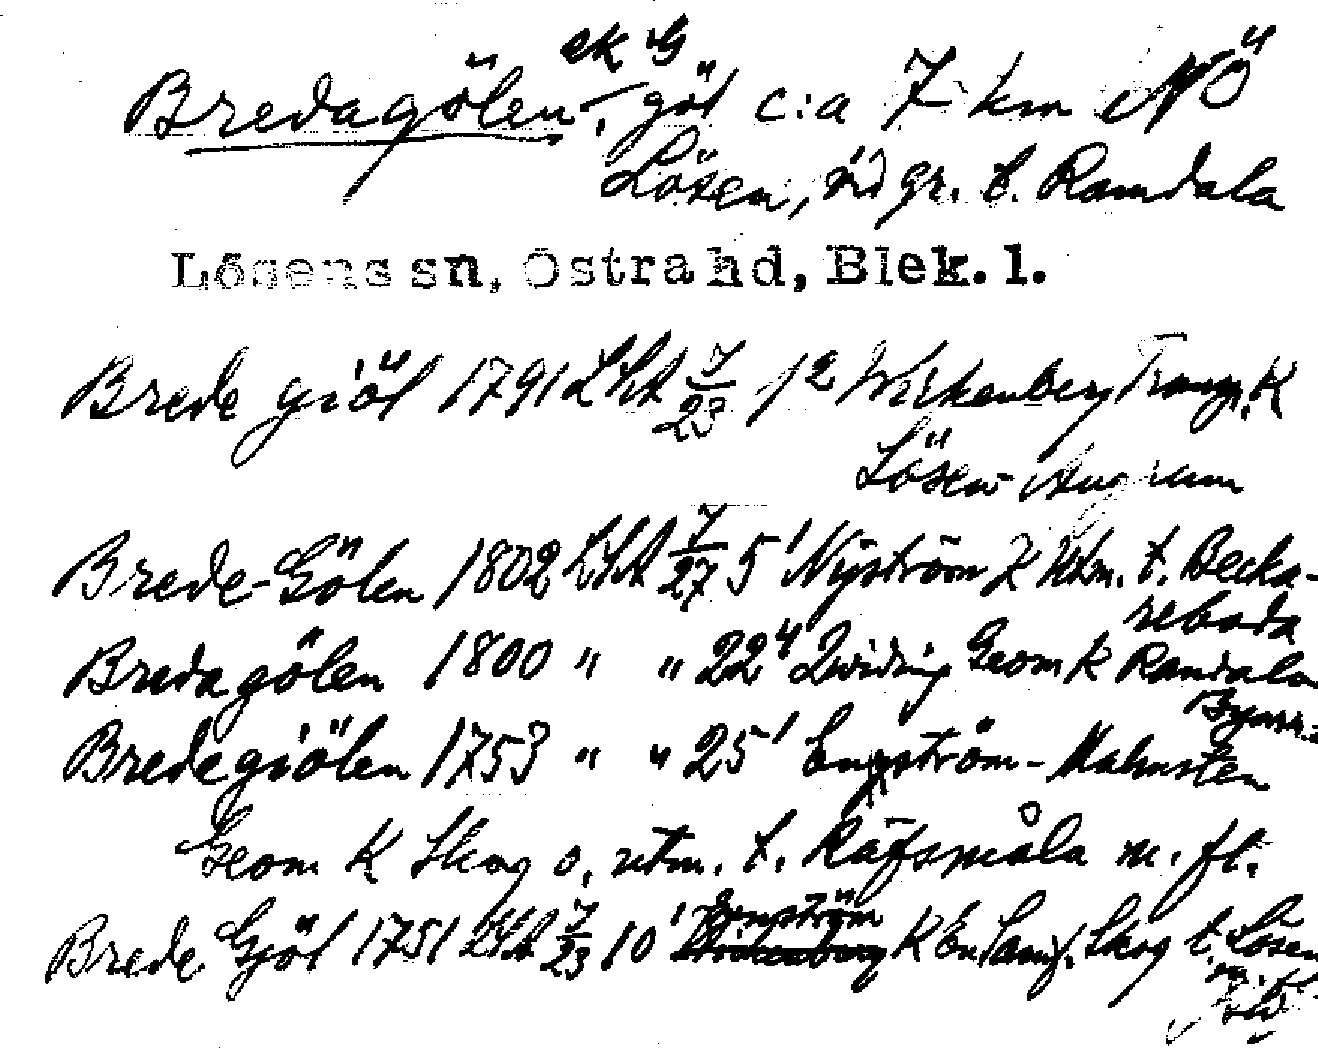 ek G
Bredagölen, göl c:a 7 km NÖ
Lösen, vid gr. t. Ramdala
Lösens sn, Östra hd, Blek. l.
Brede giöl 1791 LSA 7/23 1² Wirkenberg Transp. K
Lösen
Brede-Gölen 1802 LSA 7/27 5¹ Nyström K Utm. t. Becka-
reboda
Bredagölen 1800 " " 22⁴ Qviding Geom K Ramdala
Bredegiölen 1753 " " 25¹ Engström-Malmsten
Geom K Skog o. utm. t. Räfsmåla m. fl.
Brede Gjöl 1751 LSA 7/23 10¹ K Skog t. Lösen